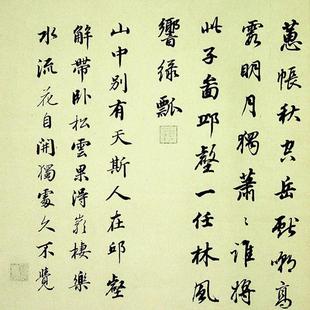 蕙帳秋空岳献嘲高
霞明月獨蕭〻誰將
此子啚邱壑一任林風
響綠瓢
山中別有天斯人在邱壑
解帶卧松雲果得嵓棲樂
水流花自開獨處久不覺